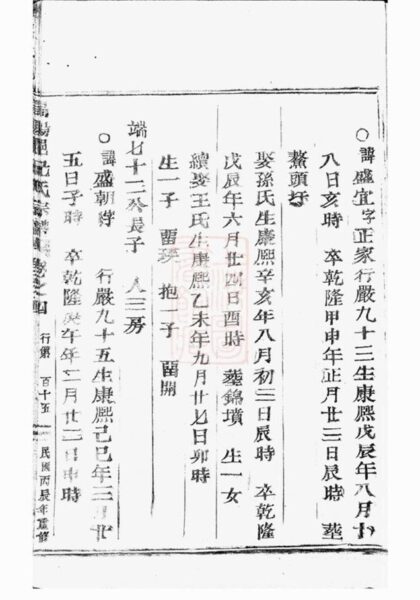 ○諱盛宜字正家行嚴九十三生康熙戊辰年八月十
八日亥時 卒乾隆甲申年正月廿三日辰時 塟
鰲頭
娶孫氏生康熙辛亥年八月初三日辰時 卒乾隆
戊辰年六月廿四日酉時 塟錦墳 生一女
續娶王氏生康熙乙未年九月廿七日卯時
生一子 抱一子 開
端七十二公長子 人三房
○諱盛朝 行嚴九十五生康熙己巳年二月廿
五日子時 卒乾隆庚午年二月廿二日申時
氏宗譜 四 行第 百十五 民國丙辰年重修